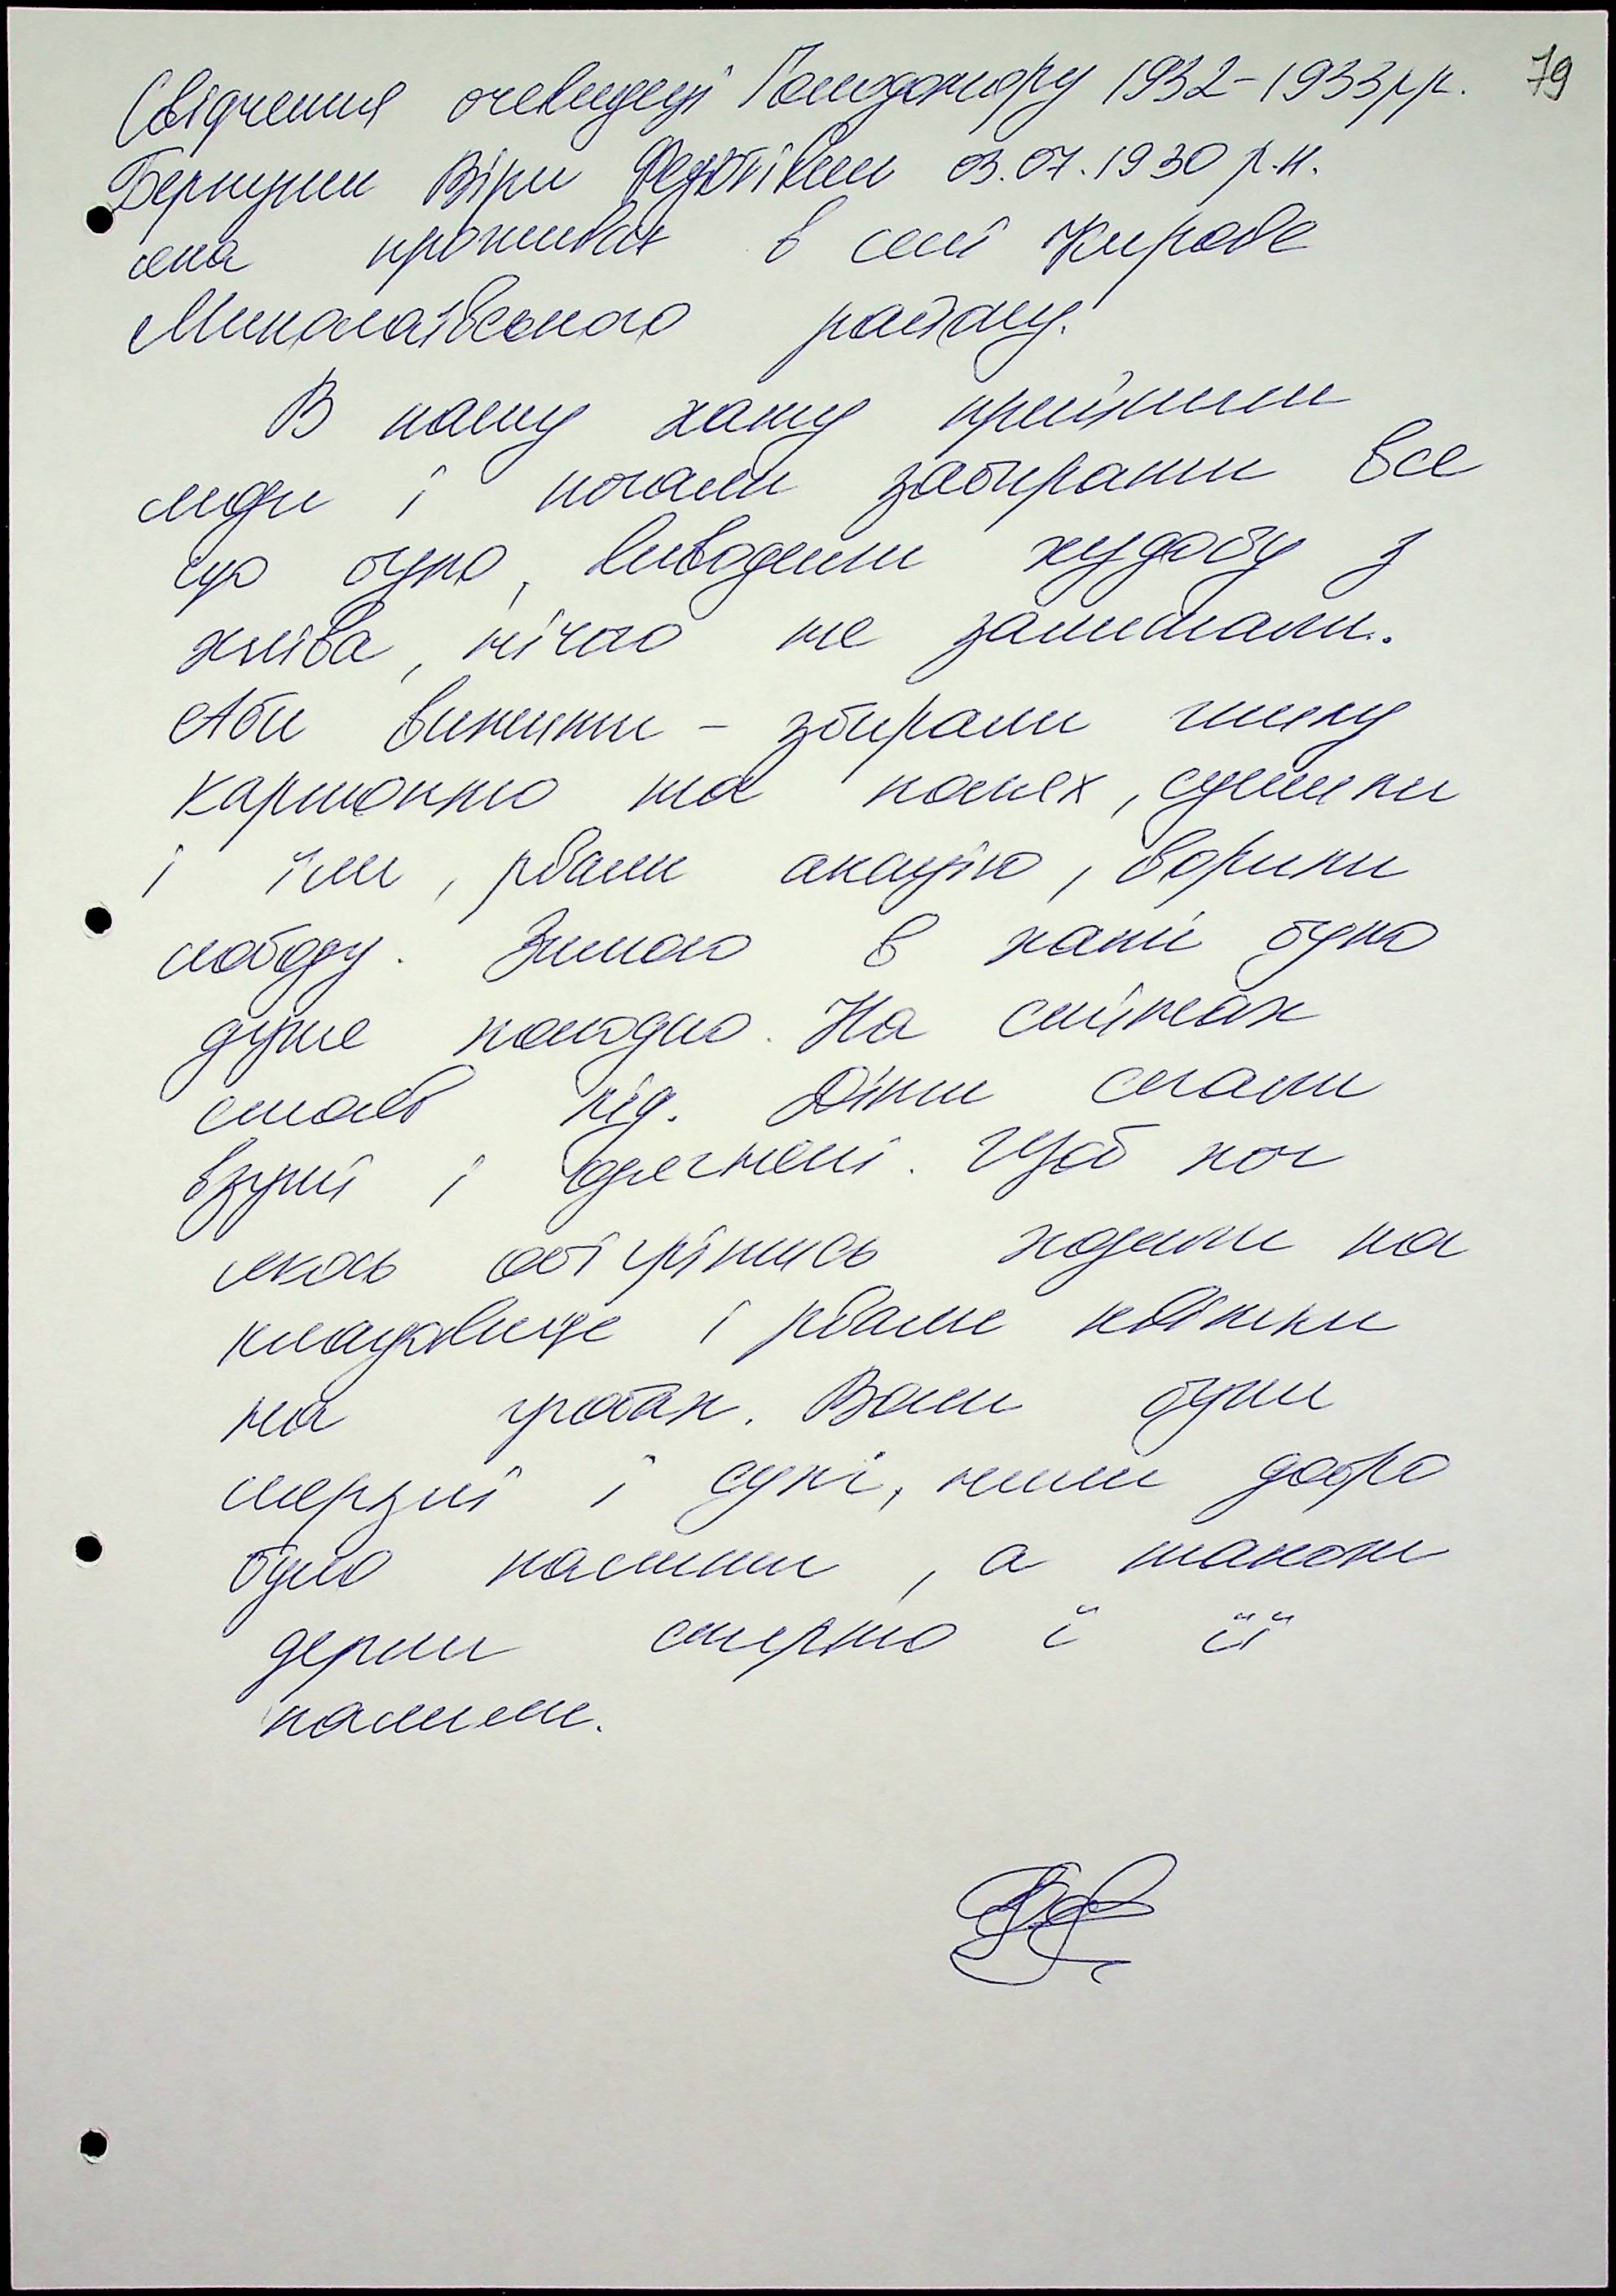 79
Свідчення очевидця Голодомору 1932-1933 р.р.
Віри Федотівни 03.07.1930 р.н.
яка проживає в селі Кирове
Миколаївського району.
В нашу хату прийшли
люди і почали забирати все
що було, виводили худобу з
хліва, нічого не залишали.
Аби вижити - збирали гнилу
картоплю на полях, сушили
і їли, рвали акацію, варили
лободу. Зимою в хаті було
дуже холодно. На стінах
стояв лід. Діти спали
взуті і одягнені. Щоб хоч
якось обігрітись ходили на
кладовище і рвали квітки
на гробах. Вони були
мерзлі і сухі, ними добро
було палити, а також
дерли стерню і її
палили.